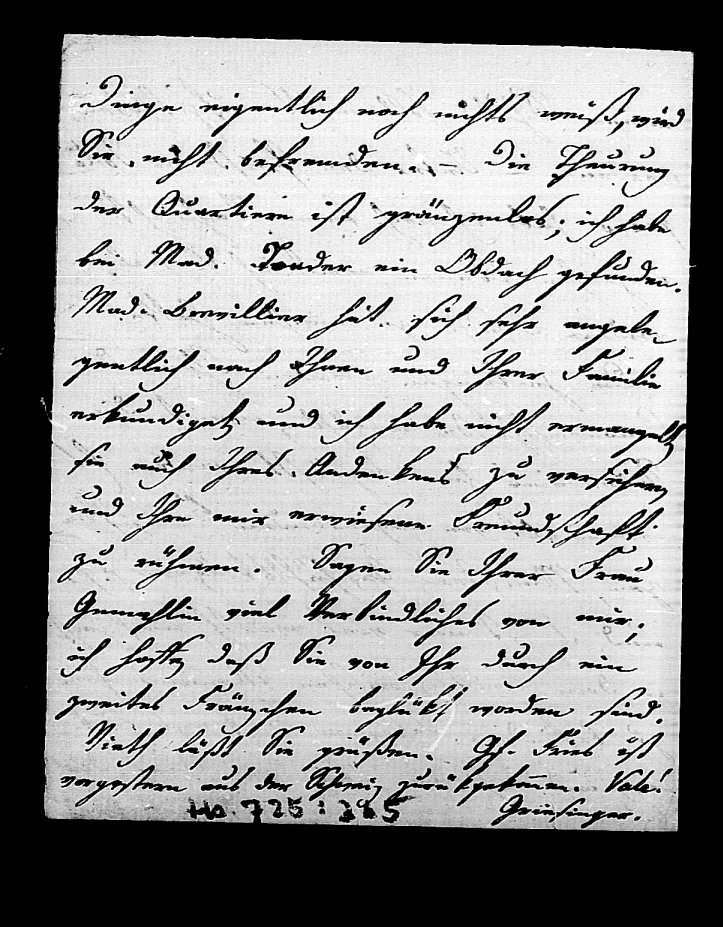 Dinge eigentlich noch nichts weiß, wird
Sie nicht befremden. – Die Theurung
der Quartiere ist gränzenlos; ich habe
bei Mad. Tonder ein Obdach gefunden.
Mad. Brevillier hat sich sehr angele-
gentlich nach Ihnen und Ihrer Familie
erkundiget, und ich habe nicht ermangelt,
sie Ihres Andenkens zu versichern
und Ihre mir erwiesene Freundschaft
zu rühmen. Sagen Sie Ihrer Frau
Gemahlin viel Verbindliches von mir;
ich hoffe, daß Sie von Ihr durch ein
zweites Fränzchen beglükt worden sind.
Vieth läßt Sie grüßen. Gf. Fries ist
vorgestern aus der Schweiz zurükgekommen. Vale!
Griesinger.
Ho. 725:725